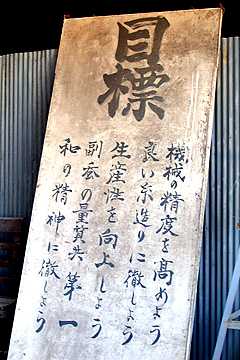 目標
機械の精度を高めよう
良い糸造りに徹しよう
生産性を向上しよう
副蚕の量質共第一
和の精神に徹しよう